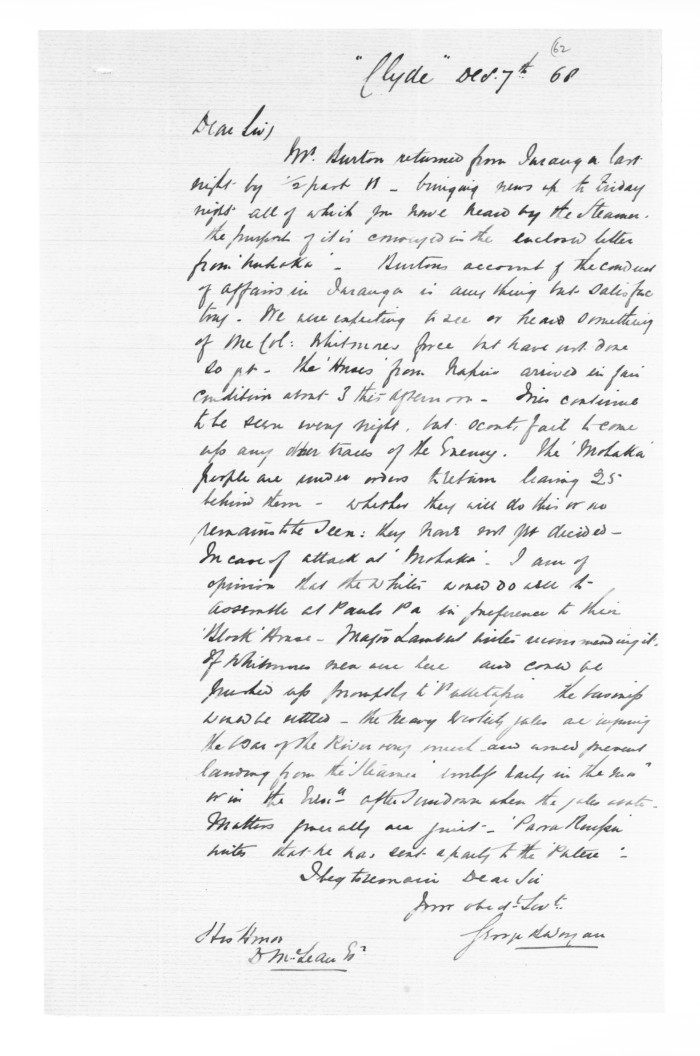 (62
"Clyde" Decr. 7th 68
Dear Sir,
Mr. Burton returned from Turanga last
night by 1/2 past 11 - bringing news up to Friday
night all of which you have heard by the Steamer.
the purport of it is conveyed in the enclosed letter
from 'Nuhaka' - Burtons account of the conduct
of affairs in Turanga is any thing but satisfac
tory. We are expecting to see or hear something
of the Col: Whitmores force but have not done
so yet - the 'Horses' from Napier arrived in fair
condition about 3 this afternoon - Fires continue
to be seen every night, but scouts fail to come
up any other traces of the Enemy. The 'Mohaka'
people are under orders to return leaving 25
behind them - whether they will do this or no
remains to be seen: they have not yet decided -
In case of attack at 'Mohaka' - I am of
opinion that the Whites would do well to
assemble at Pauls Pa in preference to their
'Block' House - Major Lambert writes recommending it.
If Whitmores men were here and could be
pushed up promptly to the business
would be settled - the heavy Westerly gales are injuring
the bar of the River very much and would prevent
landing from the 'Steamer' unless early in the morn
or in the Even after Sundown when the gales abate -
Matters generally are quiet -
writes that he has sent a party to the 'Patere' -
I beg to remain Dear Sir
Your obedt. Servt.
George
His Honor
D McLean Esq